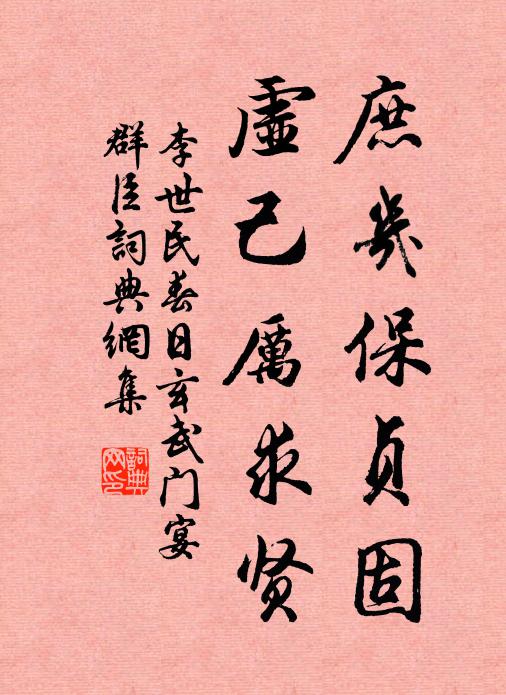 庶几保貞固
虛己厲求贤
李世民春日玄武门宴
群臣詞典網集
詞典网印